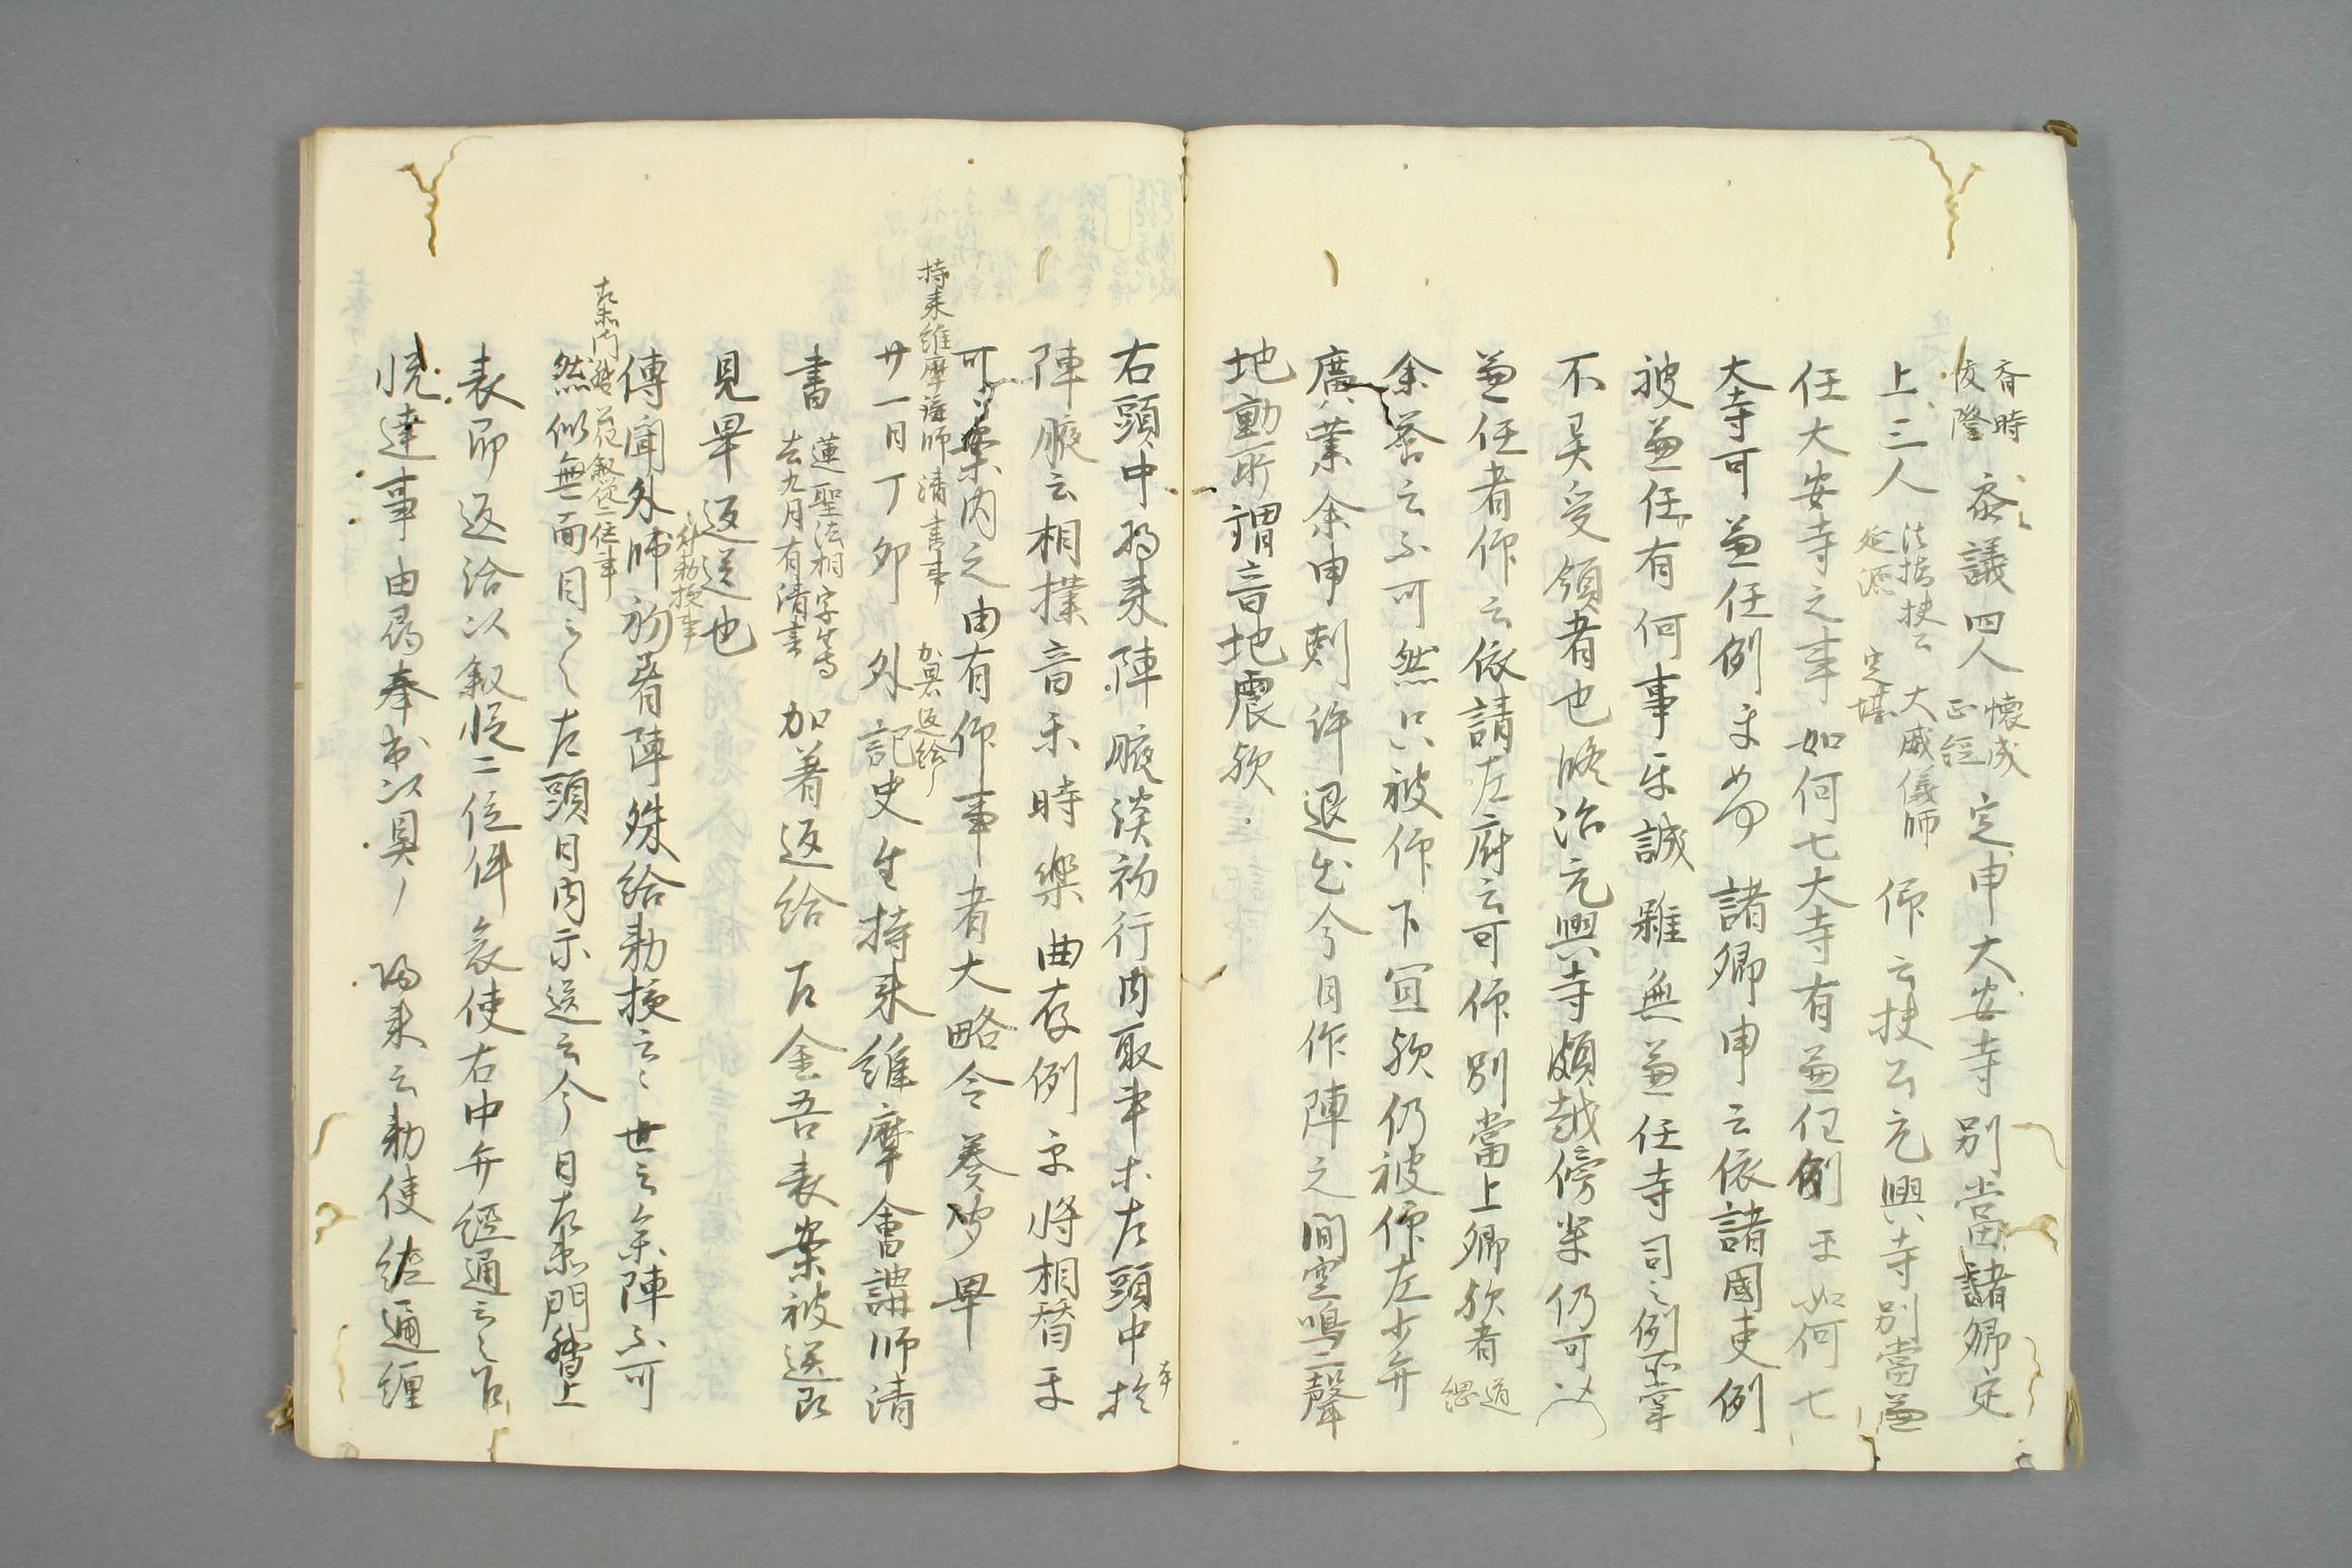 斉時
俊隆
参議四人
懐成
正経
定申大安寺別當諸卿定
上三人
法橋扶公
延源
大威儀師
定堪
仰云扶公元興寺別當兼
任大安寺之事如何七大寺有兼任例乎如何七
大寺可兼任例
諸卿申云依諸國吏例
被兼任有何事乎誠雖無兼任寺司之例不掌
不異受領者也修治元興寺頗越傍輩仍可
兼任者仰云依請左府云可仰別當上卿歟者
道
綱
余答云不可然只被仰下宜歟仍被仰左少弁
廣業余申剋許退出今日作陣之間空鳴二聲
地動所謂音地震歟
右頭中将来陣腋談初行内取事等左頭中於
陣腋云相撲音楽時樂曲存例乎将相替乎
可案内之由有仰事者大略令奏聞畢
持来維摩講師清書事
加署返給
廿一日丁卯外記史生持来維摩會講師清
書
蓮聖法相宗
去九月有清書
加署返給右金吾表案被送即
見畢返送也
外勅授事
傳聞外帥初着陣殊給勅授云々世云参陣不可
左衛門督
叙従二位事
然似無面目云々左頭日内示送云今日左衛門督上
表即返給以叙従二位件表使右中弁経通云々右
悦達事由
帰来云勅使経通纏